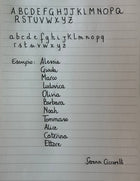 A B C D E F G H I J K L M N O P Q
R S T U V W X Y Z
a b c d e f g h i j k l m n o p q
r s t u v w x y z
Esempio: Alessia
Giulia
Marco
Ludovica
Olivia
Barbara
Noah
Tommaso
Alice
Caterina
Ettore